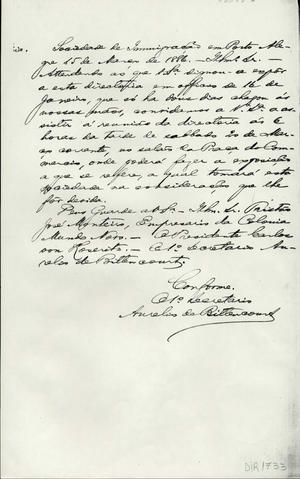 Sociedade de Immigração em Porto Ale-
gre 15 de Março de 1886. — Illmo. Sr. —
Attendendo ao que V.Sª. dignou-se expor
a esta directoria em officio de 16 de
Janeiro, que só ha dous dias chegou ás
nossas mãos, convidamos a V. Sª. a as-
sistir á reunião da directoria ás 6
horas da tarde de sabbado 20 de Mar-
ço corrente, no salão da Praça do Com-
mercio, onde poderá fazer a exposição
a que se refere, a qual tomará esta
sociedade na consideração que lhe
fôr devida.
Deus Guarde a V. Sª. — Illmo. Sr. Tristão
José Monteiro, Empresario da Colonia
Mundo Novo. — O Presidente Carlos
von Koseritz. — O 1º Secretario Au-
relio de Bittencourt.
Conforme.
O 1º Secretario
Aurelio de Bittencourt
DIR1733